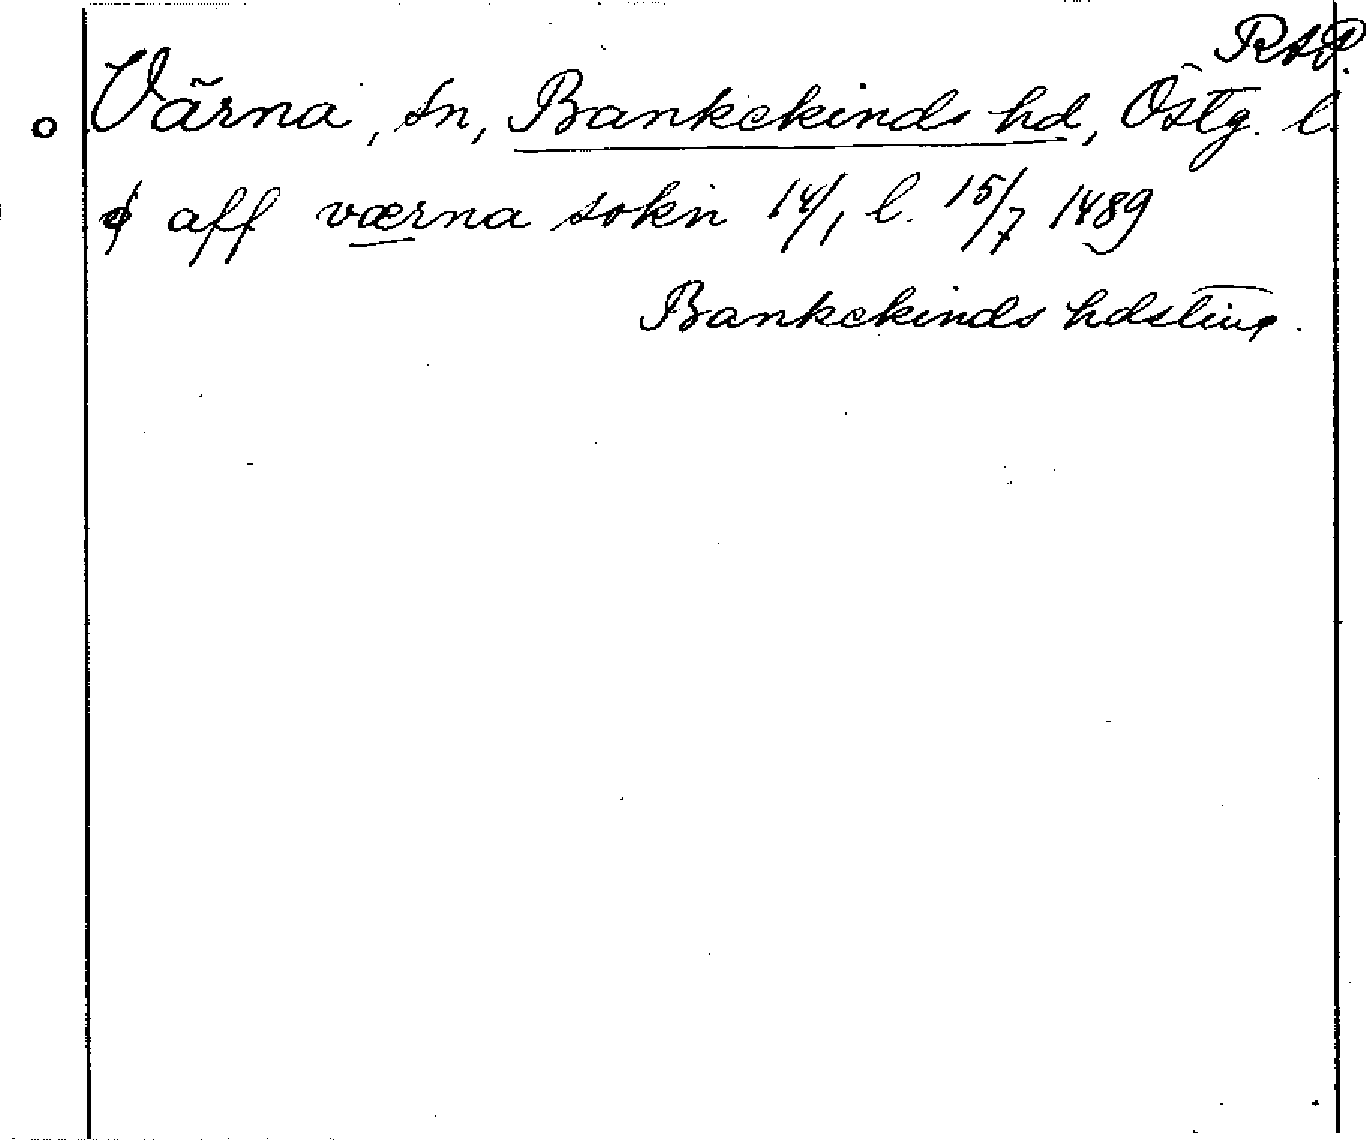 RAP.
Värna, sn, Bankekinds hd, Östg. l.
aff værna sokn 14/1 l. 15/7 1489
Bankekinds hdsting.